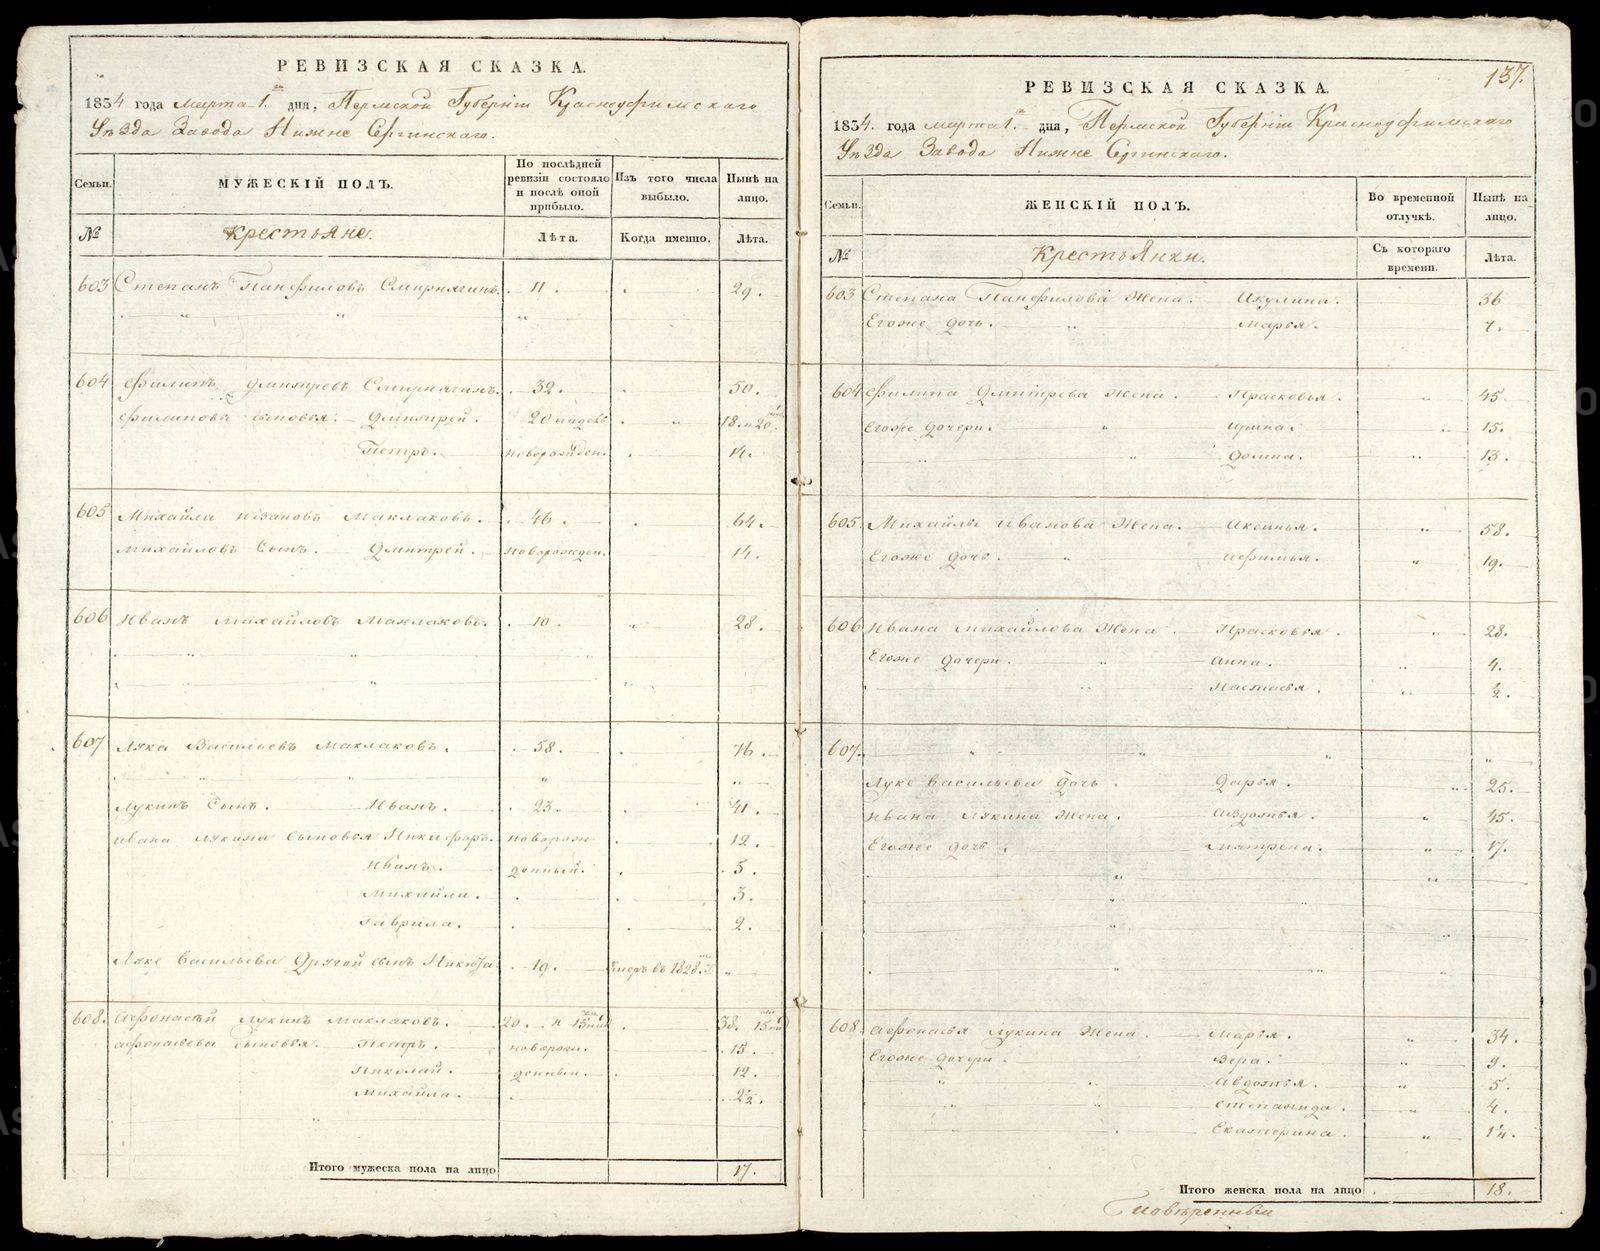 РЕВИЗСКАЯ СКАЗКА.
1834 года марта 1. дня, Пермской Губерніи Красноуфимскаго
Уѣзда Завода Нижне Сергинскаго.
Семьи. МУЖЕСКІЙ ПОЛЪ. По послѣдней ревизіи состояло и послѣ оной прибыло. Изъ того числа выбыло. Нынѣ на лицо.
№ Крестьяне. Лѣта. Когда именно. Лѣта.
603 Степанъ Панфиловъ Смирнягинъ. 11. 29.
604 Филипъ Дмитревъ Смирнягинъ. 32. 50.
Филиповы сыновья. Дмитрей. 20 недель 18. и 20.
Петръ. новорожден. 14.
605 Михайла Ивановъ Маклаковъ. 46. 64.
Михайловъ Сынъ. Дмитрей. новорожден. 14.
606 Иванъ Михайловъ Маклаковъ. 10. 28.
607 Лука Васильевъ Маклаковъ. 58. 76.
Лукинъ Сынъ. Иванъ. 23. 41.
Ивана Лукина Сыновья Никифоръ. новорож 12.
Иванъ. денный. 5.
Михайла. 3.
Гаврила. 2.
Луке Васильева Другой сынъ Никита 19. Умеръ въ 1828. Г.
608. Афонасѣй Лукинъ Маклаковъ. 20. и 15 38. 15
Афонасьева Сыновья. Петръ. новорож. 15.
Николай. денныи. 12.
Михайла. 2½.
Итого мужеска пола на лицо 17.
137.
РЕВИЗСКАЯ СКАЗКА.
1834. года марта 1. дня, Пермской Губерніи Красноуфимскаго
Уѣзда Завода Нижне Сергинскаго.
Семьи. ЖЕНСКІЙ ПОЛЪ. Во временной отлучкѣ. Нынѣ на лицо.
№ Крестьянки. Съ котораго времени. Лѣта.
603 Степана Панфилова Жена. Акулина. 36
Егоже дочь. Марья. 7.
604 Филипа Дмитрева Жена. Прасковья. 45.
Егоже дочери. Ирина. 15.
Домна. 13.
605. Михайлы Иванова Жена. Аксинья. 58.
Егоже дочь. Афимья. 19.
606 Ивана Михайлова Жена Прасковья. 28.
Егоже дочери. Анна. 4.
Настасья. ½.
607.
Луке Васильева Дочь. Дарья. 25.
Ивана Лукина Жена. Авдотья. 45.
Егоже дочь. Матрена. 17.
608 Афонасья Лукина Жена. Марья. 34.
Егоже дочери. Вера. 9.
Авдотья. 5.
Степанида. 4.
Екатерина. 1¼.
Итого женска пола на лицо 18.
Повѣренный